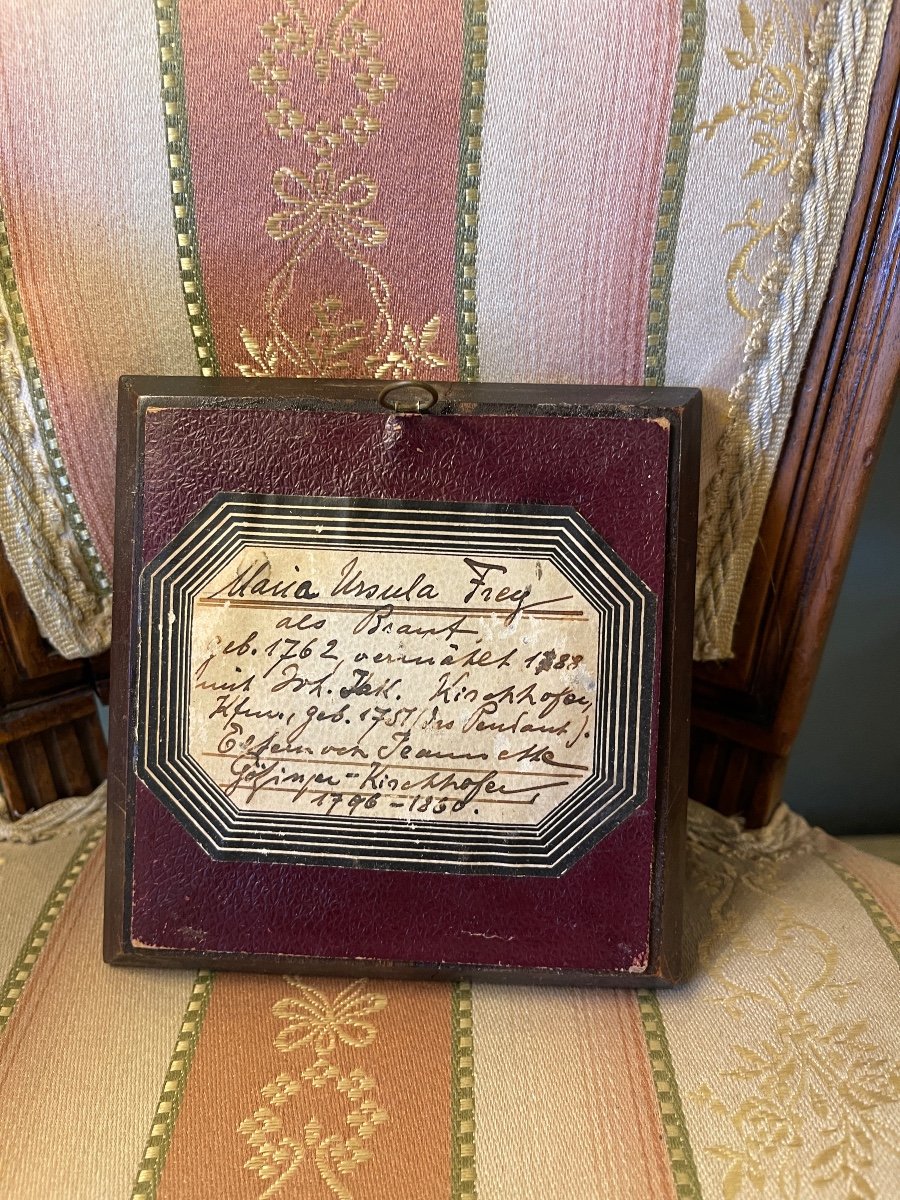 Maria Ursula Frey
als Braut
geb. 1762, vermählt 1788
mit Joh. Jak. Kirchhofer,
geb. 1751 (das Pendant).
Eltern von Jeannette
Gösinger-Kirchhofer,
1796-1850.